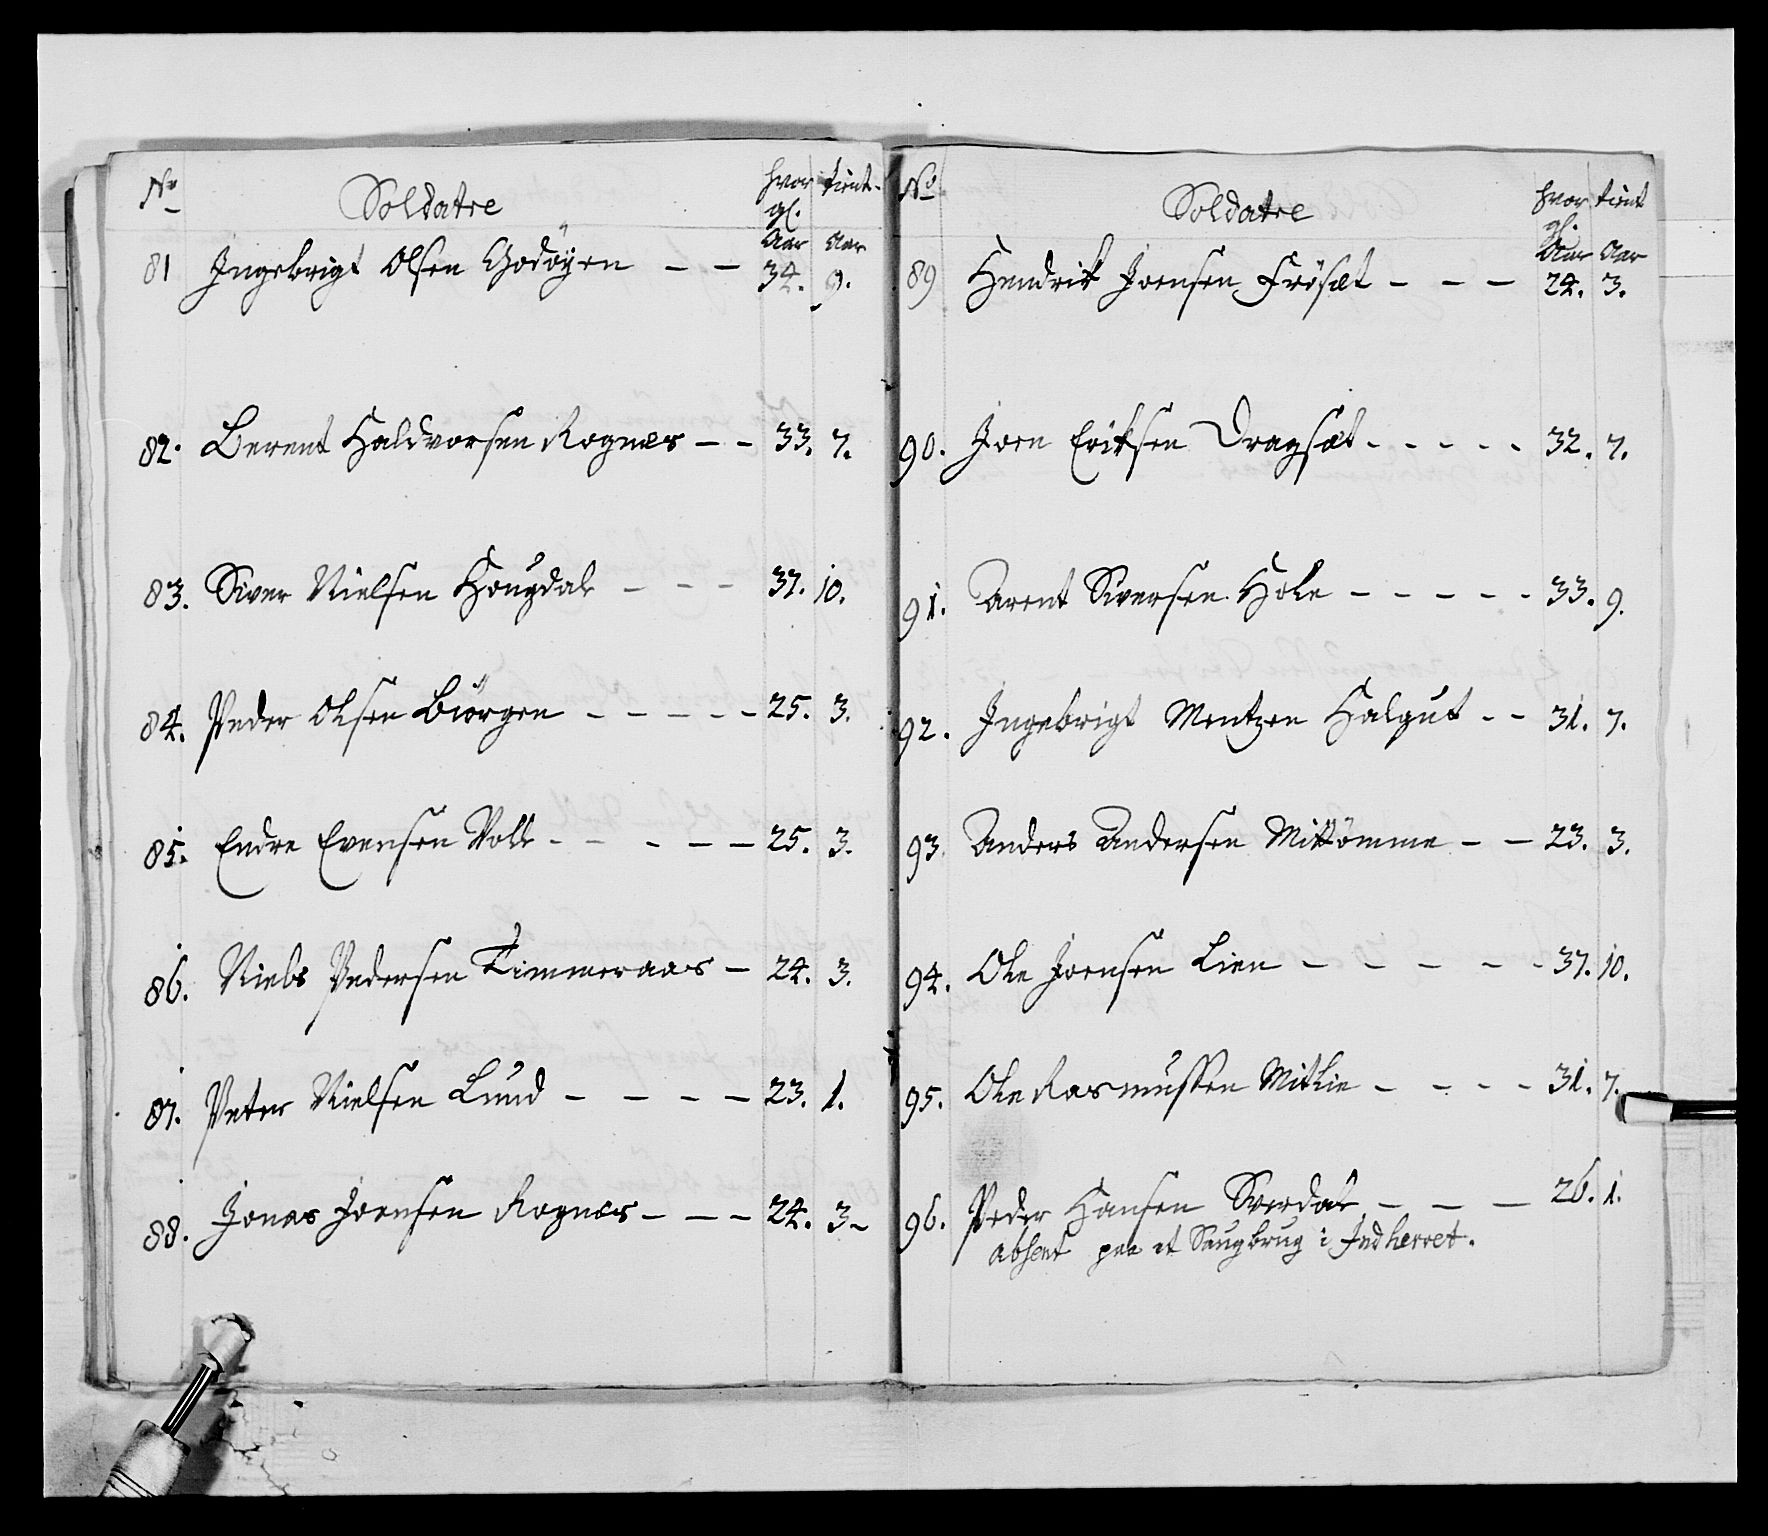 No
Soldatre
hvor gl.
tient
Aar
Aar
81 Ingebrigt Olsen Godöyen — — 34. 9.
82. Berent Haldvorsen Rognæs — — 33. 7.
83. Siver Nielsen Hougdal — — — 37. 10.
84. Peder Olsen Biörgen — — — — — 25. 3.
85. Endre Evensen Voll — — — — — 25. 3.
86. Niels Pedersen Timmeraas — 24. 3.
87. Peter Nielsen Lund — — — — 23. 1.
88. Jonas Joensen Rognæs — — — 24. 3.
No
Soldatre
hvor gl.
tient
Aar
Aar
89 Hendrik Joensen Frösæt — — — 24. 3.
90. Joen Eriksen Dragsæt — — — — — 32. 7.
91. Arent Siversen Hole — — — — — 33. 9.
92. Ingebrigt Mentzen Halgut — — 31. 7.
93. Anders Andersen Mittömme — — 23. 3.
94. Ole Joensen Lien — — — — — 37. 10.
95. Ole Rasmussen Mitlie — — — — 31. 7.
96. Peder Hansen Sverdal — — — 26. 1.
absent paa et Saugbrug i Indherret.